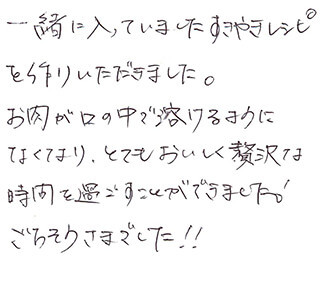 一緒に入っていましたすきやきレシピ
を作りいただきました。
お肉が口の中で溶けるように
なくなり、とてもおいしく贅沢な
時間を過ごすことができました！
ごちそうさまでした！！